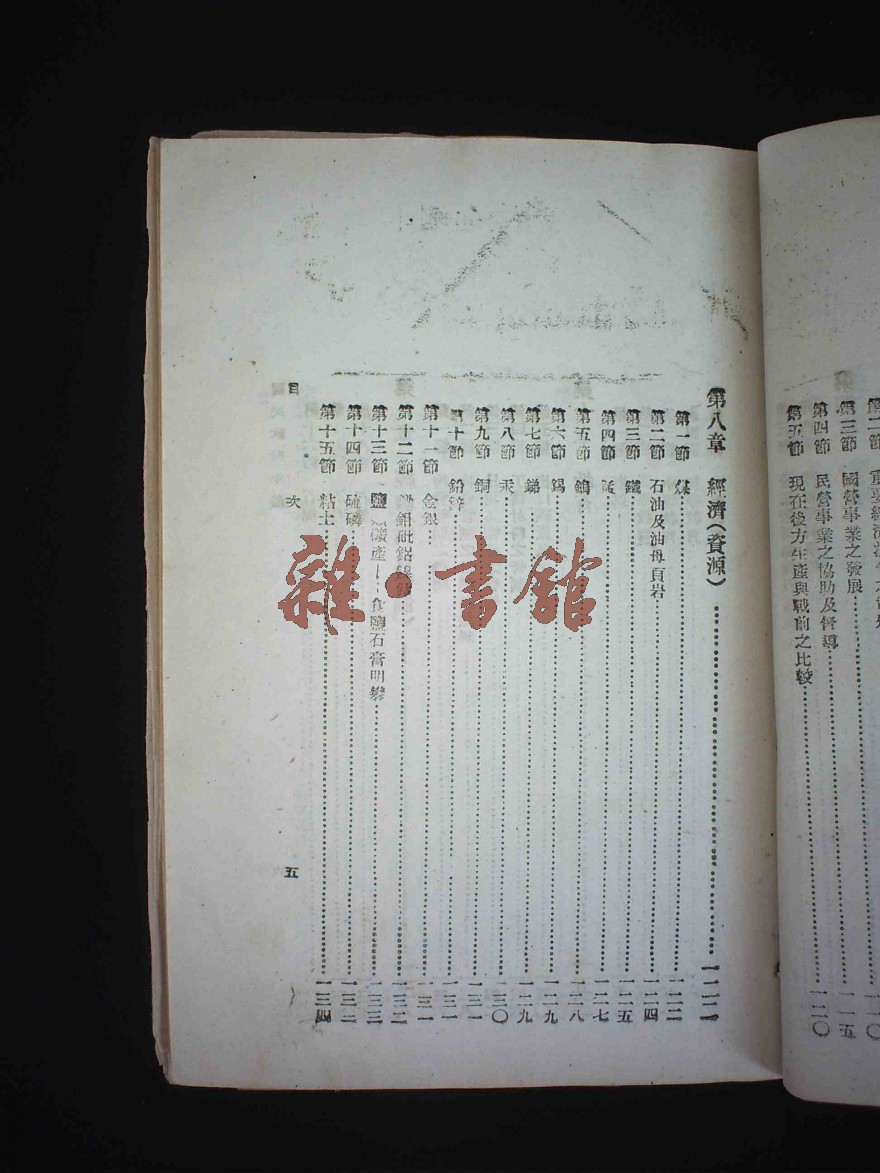 第三節 國營事業之發展
第四節 民營事業之協助及督導 一一五
第五節 現在後方生產與戰前之比較 一二〇
第八章 經濟(資源) 一二二
第一節 煤 一二二
第二節 石油及油母頁岩 一二四
第三節 鐵 一二五
第四節 錳 一二七
第五節 鎢 一二八
第六節 錫 一二九
第七節 銻 一二九
第八節 汞 一三〇
第九節 銅 一三一
第十節 鉛鋅 一三一
第十一節 金銀 一三一
第十二節 鉬砒鈷 一三二
第十三節 鹽 礦產 食鹽石膏明礬 一三三
第十四節 硫磷 一三三
第十五節 粘土 一三四
目次 五
雜·書館